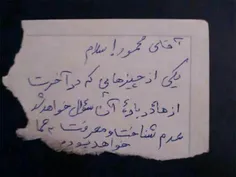 آقای محمور! سلام
یکی از چیزهایی که در آخرت
از ما درباره آن سؤال خواهد شد
عدم شناخت و معرفت به شما
خواهد بود